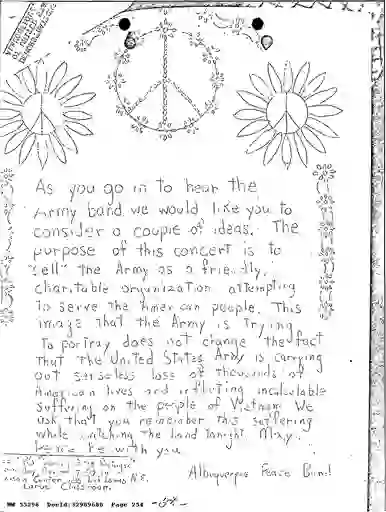 As you go in to hear the
Army band we would like you to
consider a couple of ideas. The
purpose of this concert is to
"sell" the Army as a friendly,
charitable organization attempting
to serve the American people. This
image that the Army is trying
to portray does not change the fact
that the United States Army is carrying
out senseless loss of thousands of
American lives and inflicting incalculable
suffering on the people of Vietnam. We
ask that you remember this suffering
while watching the band tonight. May
peace be with you.
Albuquerque Peace Band
N.E.
Large Classroom.
NW 55296 DocId:32989680 Page 254